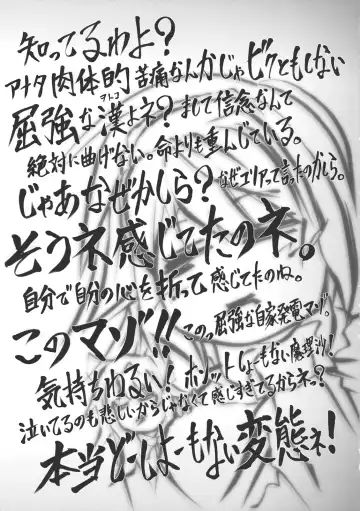 知ってるわよ?
アナタ肉体的苦痛なんかじゃビクともしない
屈強な漢よネ?まして信念なんて
オトコ
絶対に曲げない。命よりも重んじている。
じゃあなぜかしら?なぜエリアって言ったのかしら。
そうネ感じてたのネ。
自分で自分の心を折って感じてたのね。
このマゾ!!このっ屈強な自家発電マゾ。
気持ちわるい!ホントしょーもない
泣いてるのも悲しいからじゃなくて感じすぎてるからネっ?
本当どーしよーもない変態ネ!